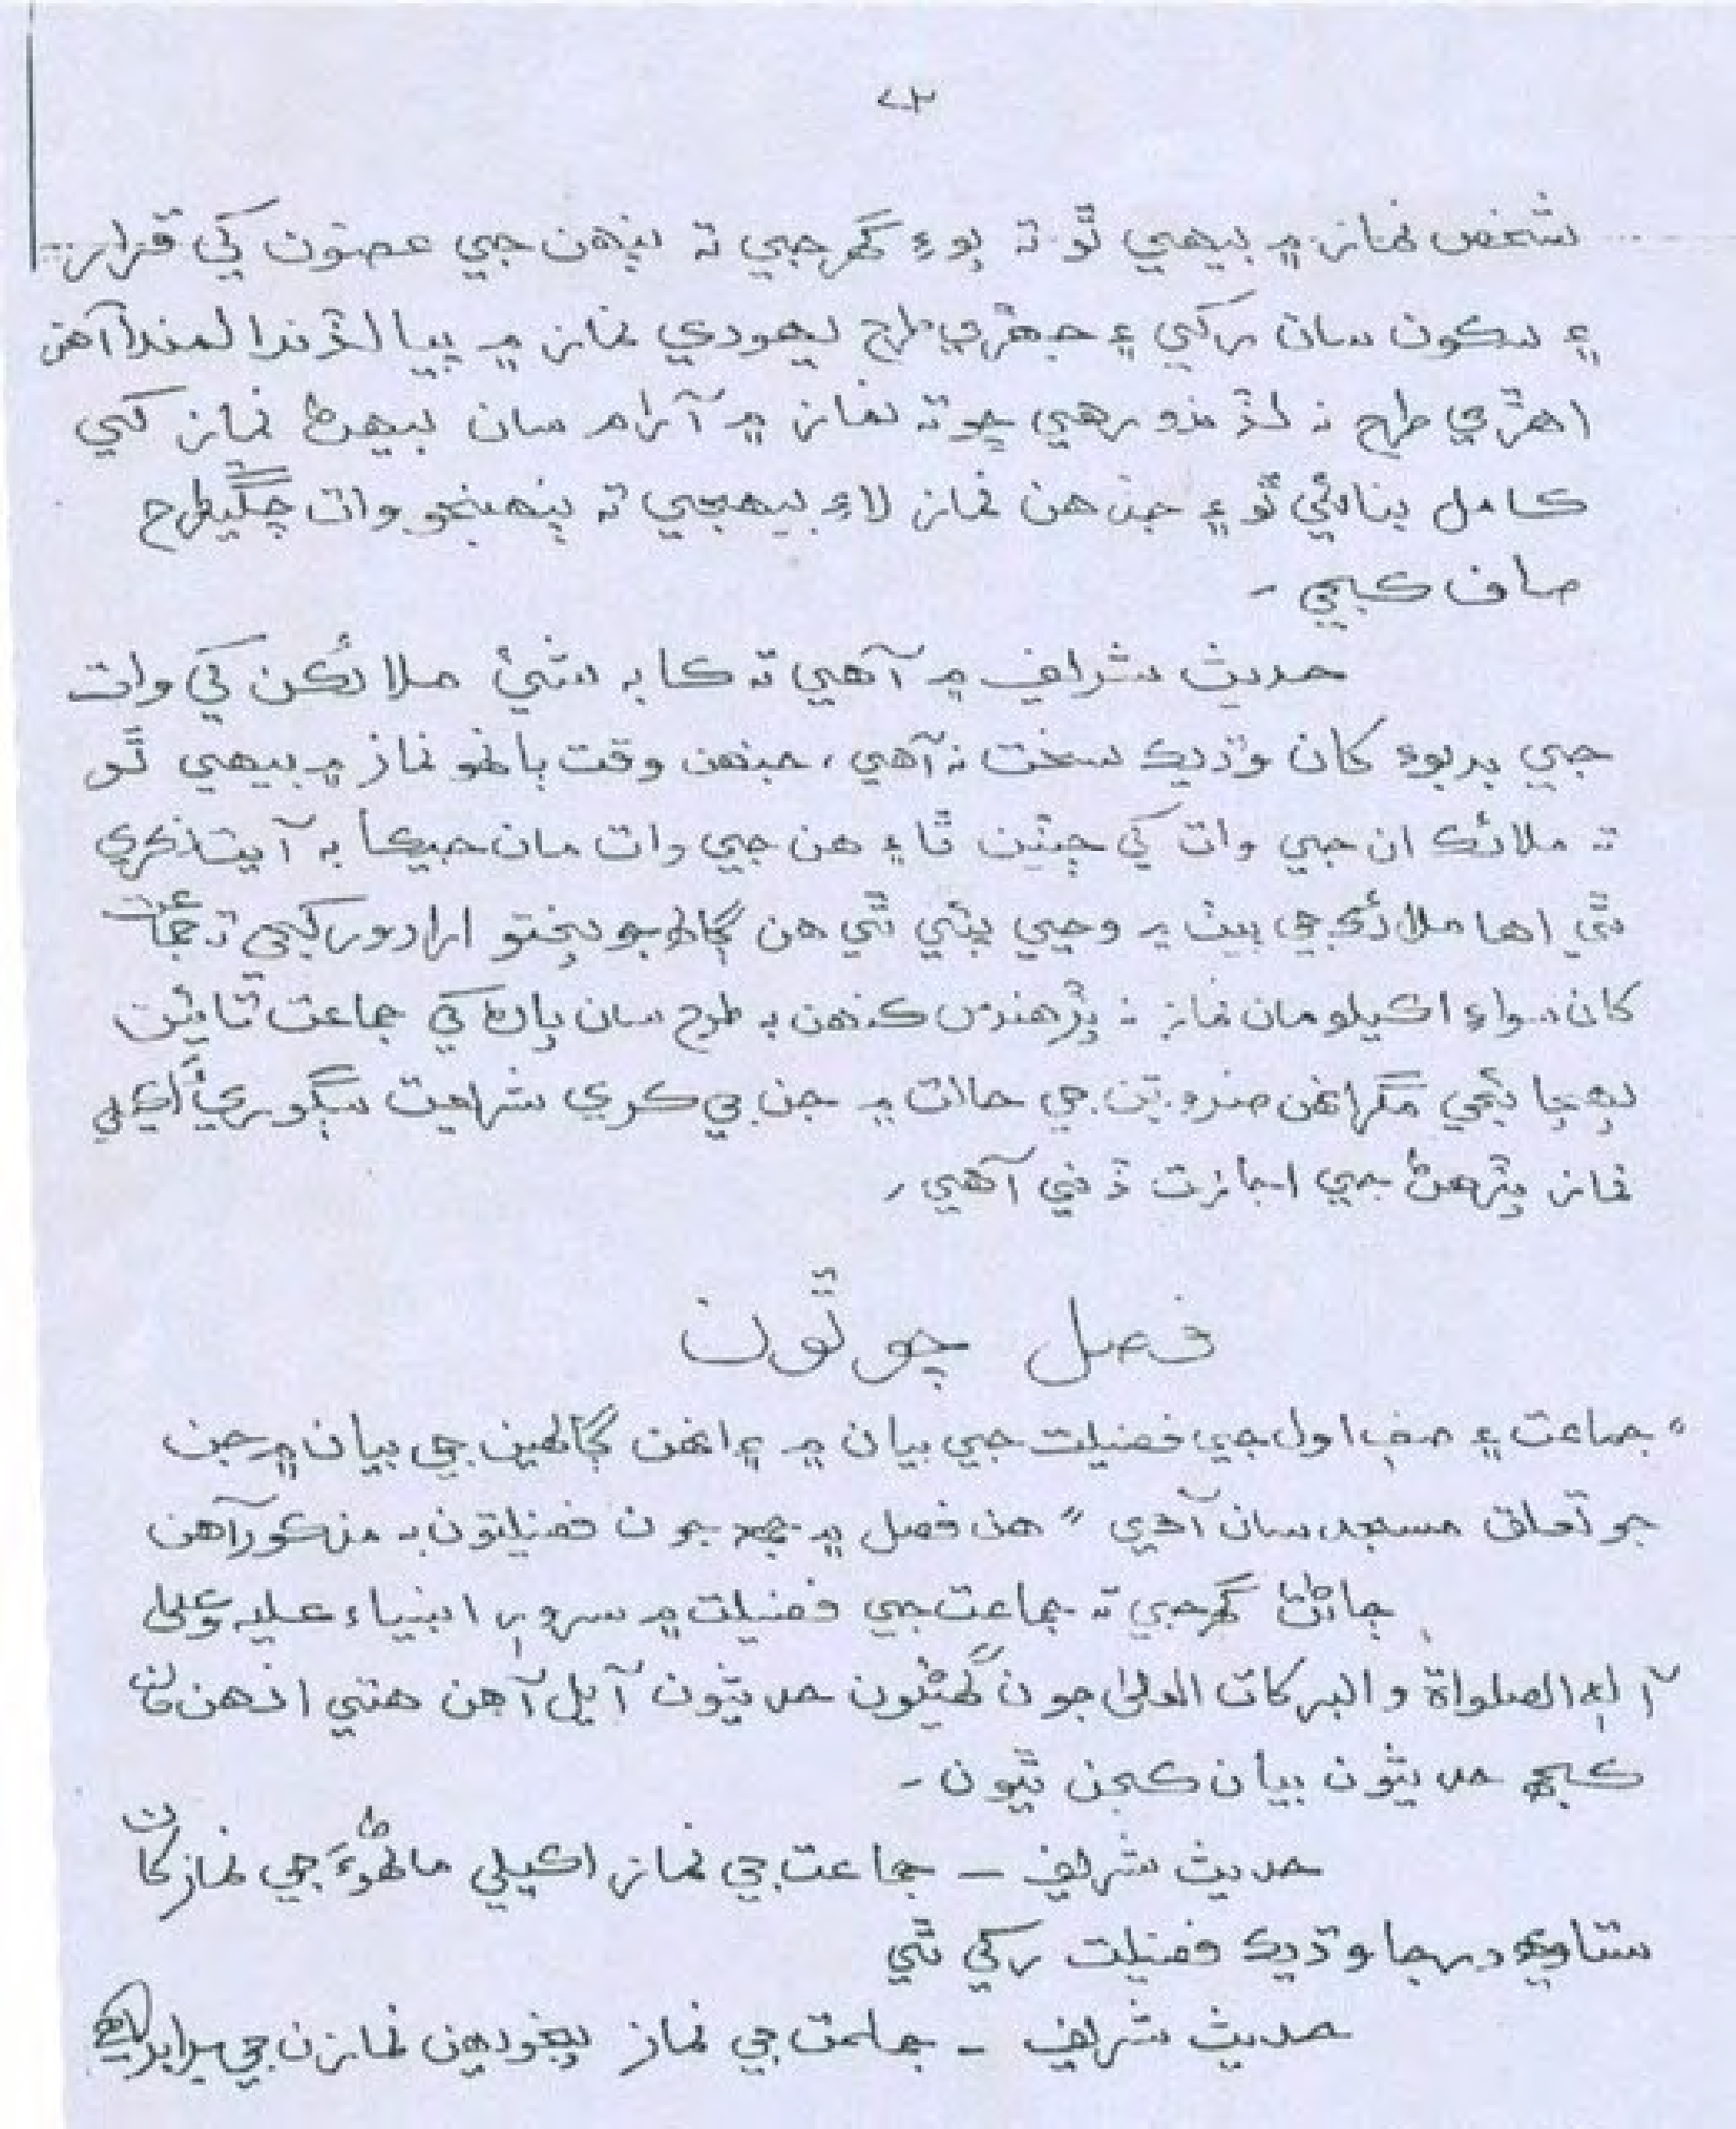 ٤٣
شخص نماز ۾ بيهي ٿو ته پوءِ گهرجي ته پنهن جي عضون کي قرار
۽ سڪون سان رکي ۽ جهڙي طرح يهودي نماز ۾ پيا لڏندا لمندا آهن
اهڙي طرح نه لڏندو رهي ڇو ته نماز ۾ آرام سان بيهڻ نماز کي
ڪامل بنائي ٿو ۽ جڏهن نماز لاءِ بيهجي ته پنهنجو وات چڱيطرح
صاف ڪجي -
حديث شريف ۾ آهي ته ڪا به شئي ملائڪن کي وات
جي بدبوءِ کان وڌيڪ سخت نه آهي، جنهن وقت ٻانهو نماز ۾ بيهي ٿو
ته ملائڪ ان جي وات کي چٽين ٿا ۽ هن جي وات مان جيڪا به آيت نڪري
ٿي اها ملائڪ جي پيٽ ۾ وڃي پئي ٿي هن ڳالهه جو پختو ارادو رکجي ته جماعت
کان سواءِ اڪيلو مان نماز نه پڙهندس ڪنهن به طرح سان پاڻ کي جماعت تائين
پهچائجي مگر انهن ضرورتن جي حالت ۾ جن جي ڪري شريعت سڳوري اڪيلي
نماز پڙهڻ جي اجازت ڏني آهي،
فصل چوٿون
"جماعت ۽ صف اول جي فضيلت جي بيان ۾ ۽ انهن ڳالهين جي بيان ۾ جن
جو تعلق مسجد سان آهي" هن فصل ۾ جمعه جون فضيلتون به مذڪور آهن
ڄاڻڻ گهرجي ته جماعت جي فضيلت ۾ سرورِ انبياء عليہ وعلى
آلہِ الصلواة والبركات العلىٰ جون گهڻيون حديثون آيل آهن هتي انهن مان
ڪجهه حديثون بيان ڪجن ٿيون -
حديث شريف - جماعت جي نماز اڪيلي ماڻهوءَ جي نماز کان
ستاويهه درجا وڌيڪ فضيلت رکي ٿي
حديث شريف - جماعت جي نماز پنجويهن نمازن جي برابر آهي